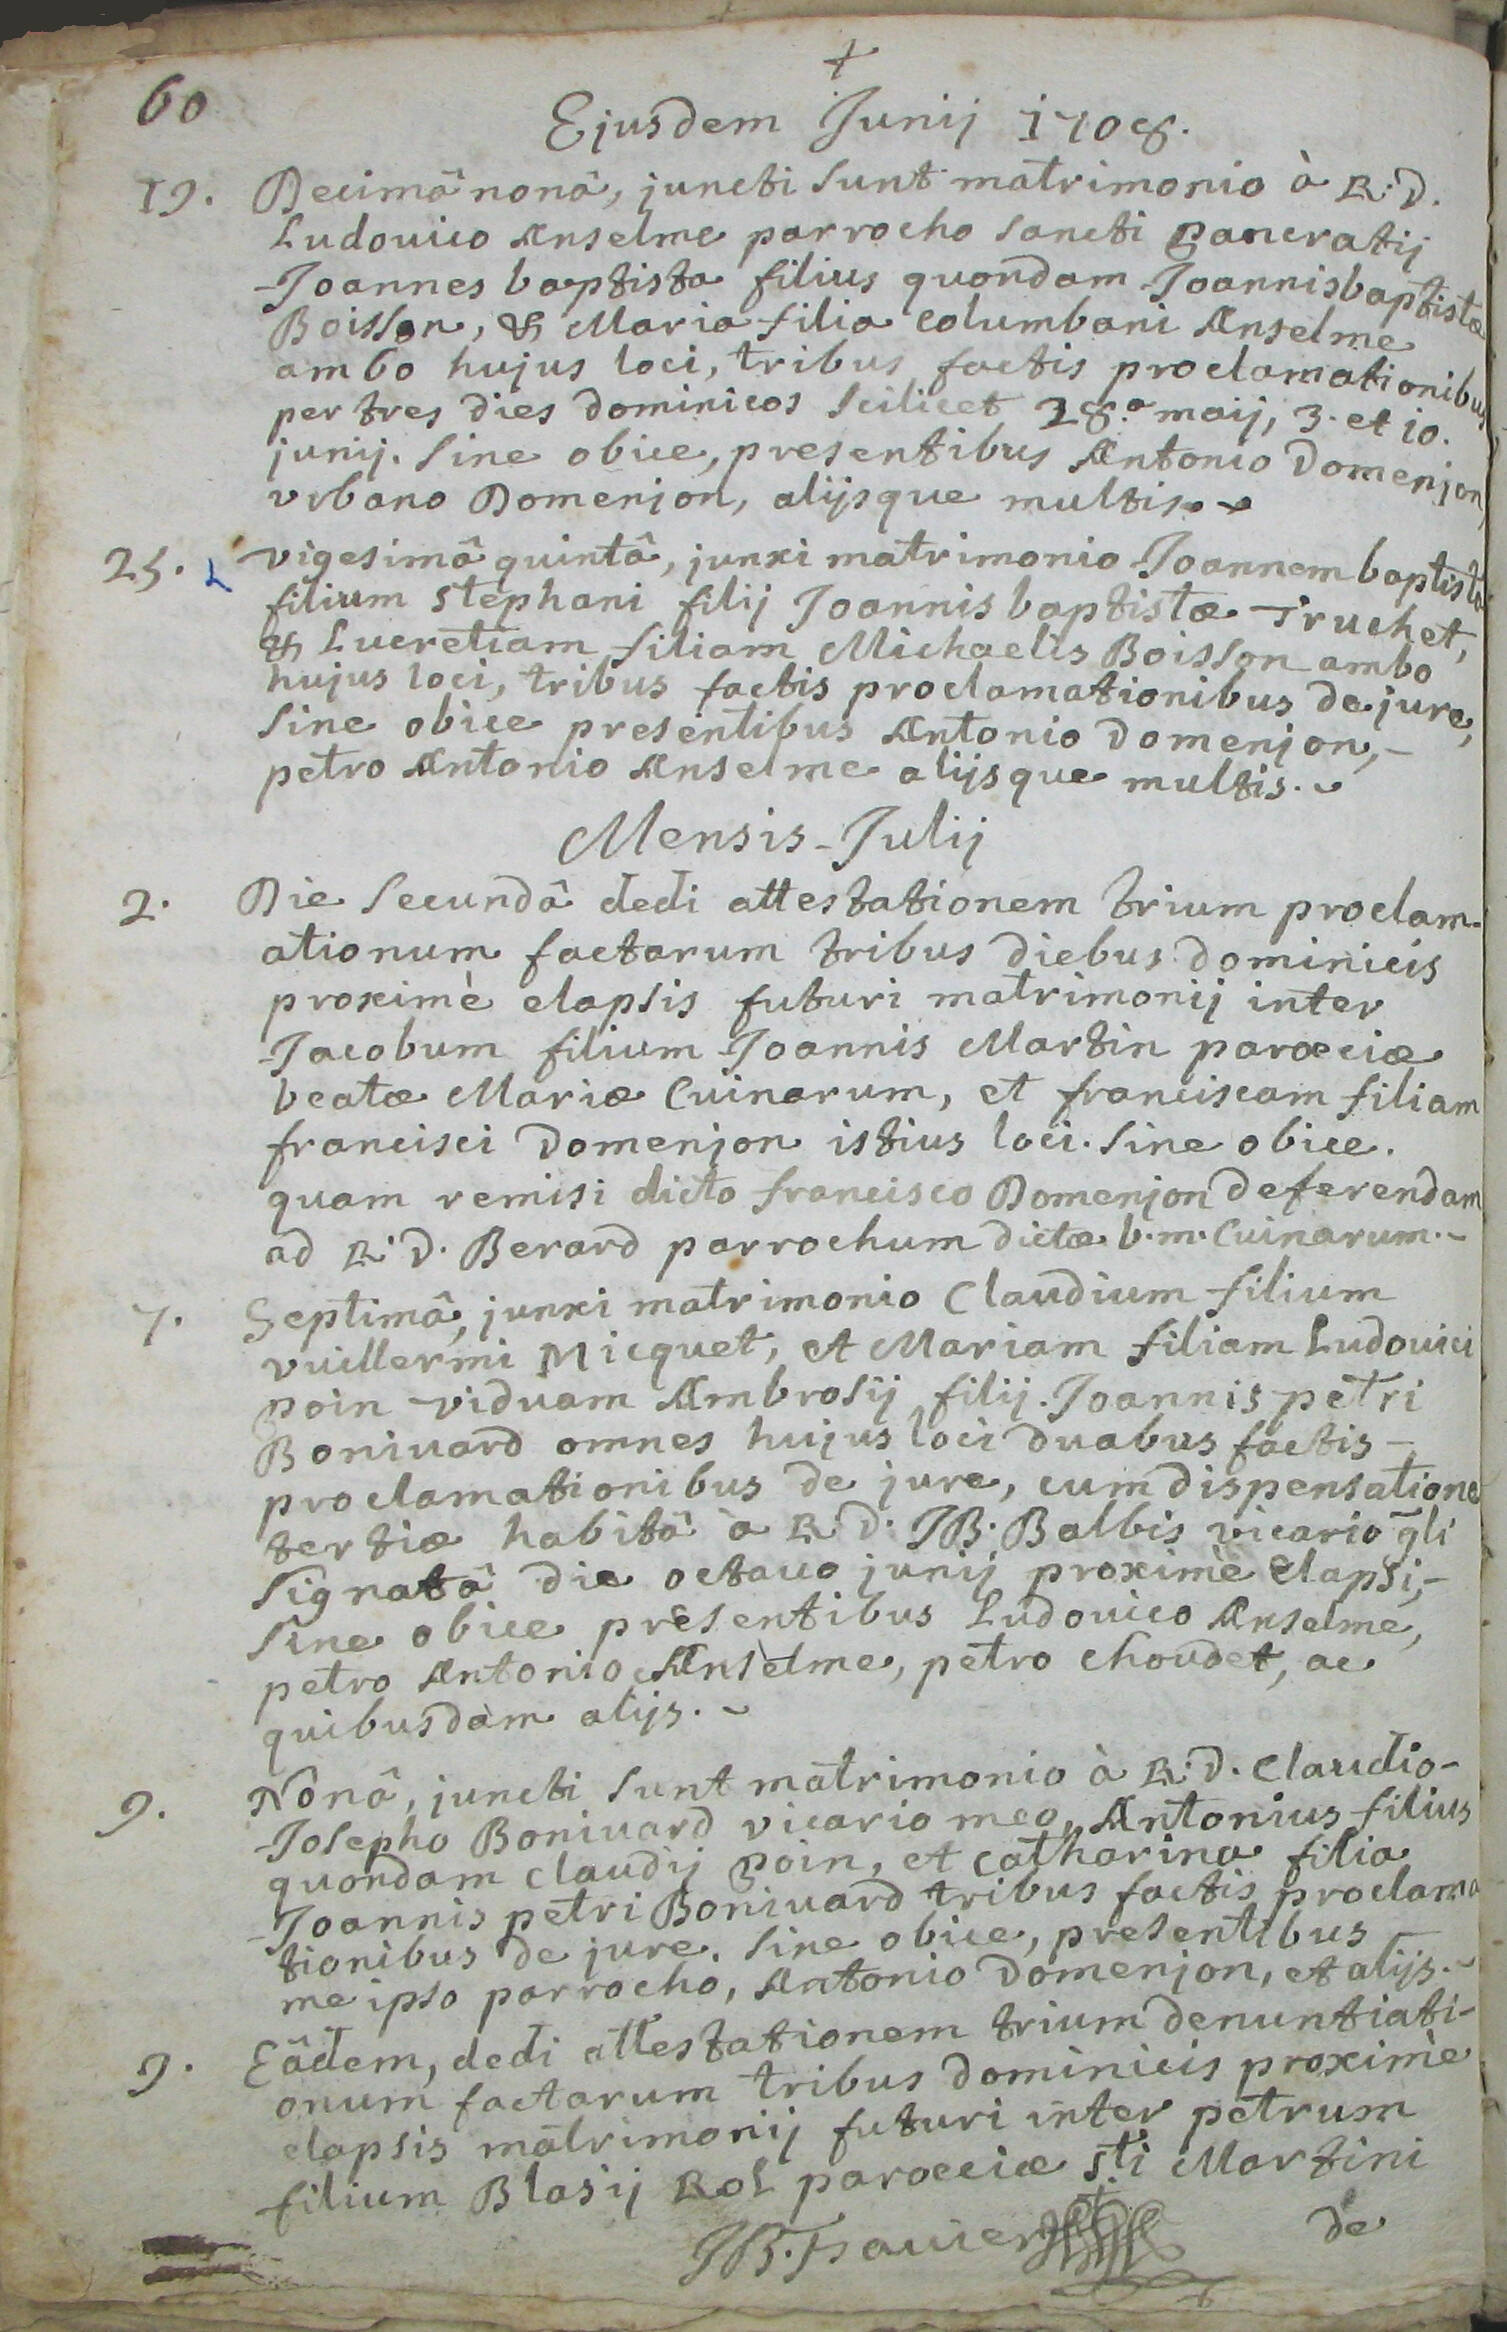 60
Ejusdem Junij 1708.
19. Decimâ nonâ, juncti sunt matrimonio à R: D.
Ludovico Anselme parrocho sancti pancratij
Joannes baptista filius quondam Joannisbaptistæ
Boisson, & Maria filia columbani Anselme
ambo hujus loci, tribus factis proclamationibus
per tres dies dominicos scilicet 28.a maij, 3. et 10.
junij. sine obice, presentibus Antonio Domenjon,
vrbano Domenjon, alijsque multis.
25. vigesimâ quintâ, junxi matrimonio Joannem baptista
filium stephani filij Joannis baptistæ Truchet,
& Lucretiam filiam Michaelis Boisson ambo
hujus loci, tribus factis proclamationibus de jure,
sine obice presentibus Antonio Domenjon,
petro Antonio Anselme alijsque multis.
Mensis Julij
2. Die secundâ dedi attestationem trium proclam-
ationum factarum tribus diebus dominicis
proximè elapsis futuri matrimonij inter
Jacobum filium Joannis Martin parœciæ
beatæ Mariæ Cuinarum, et franciscam filiam
francisci Domenjon istius loci. sine obice.
quam remisi dicto francisco Domenjon deferendam
ad R: D. Berard parrochum dictæ b. m. Cuinarum.
7. Septimâ, junxi matrimonio Claudium filium
vuillermi Micquet, et Mariam filiam Ludovici
poin viduam Ambrosij filij Joannis petri
Bonivard omnes hujus loci duabus factis
proclamationibus de jure, cum dispensatione
tertiæ habitâ à R: D: JB. Balbis vicario gli
signatâ die octavo junij proximè elapsi,
sine obice presentibus Ludovico Anselme,
petro Antonio Anselme, petro choudet, ac
quibusdam alijs.
9. Nonâ, juncti sunt matrimonio à R: D. Claudio-
Josepho Bonivard vicario meo, Antonius filius
quondam claudij poin, et catharina filia
Joannis petri Bonivard tribus factis proclama
tionibus de jure. sine obice, presentibus
me ipso parrocho, Antonio Domenjon, et alijs.
9. Eâdem, dedi attestationem trium denuntiati-
onum factarum tribus dominicis proximè
elapsis matrimonij futuri inter petrum
filium Blasij Rol parœciæ sti Martini
de